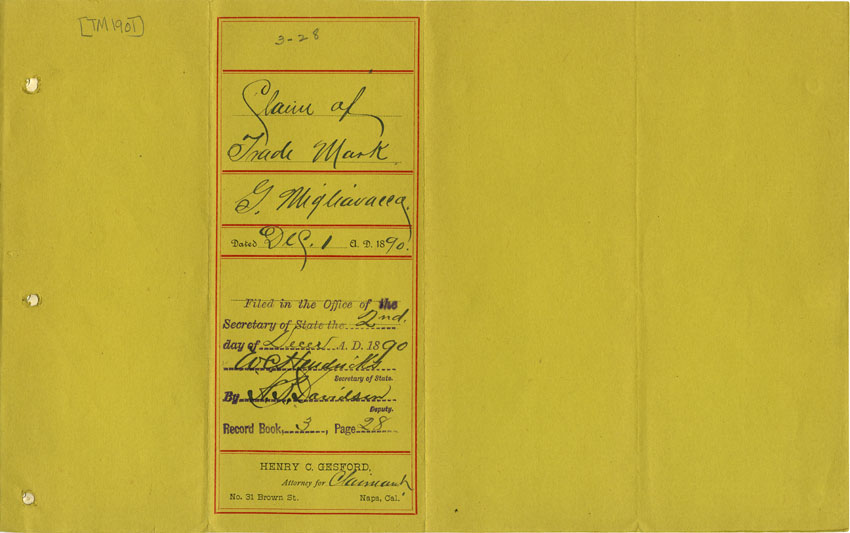 [TM 1901]
3-28
Claim of
Trade Mark
G. Migliavacca
Dated Dec. 1 A. D. 1890.
Filed in the Office of the
Secretary of State the 2nd.
day of Decer A. D. 1890
W C Hendricks
Secretary of State.
By Davidson
Deputy.
Record Book, 3, Page 28
HENRY C. GESFORD,
Attorney for Claimant
No. 31 Brown St. Napa, Cal.